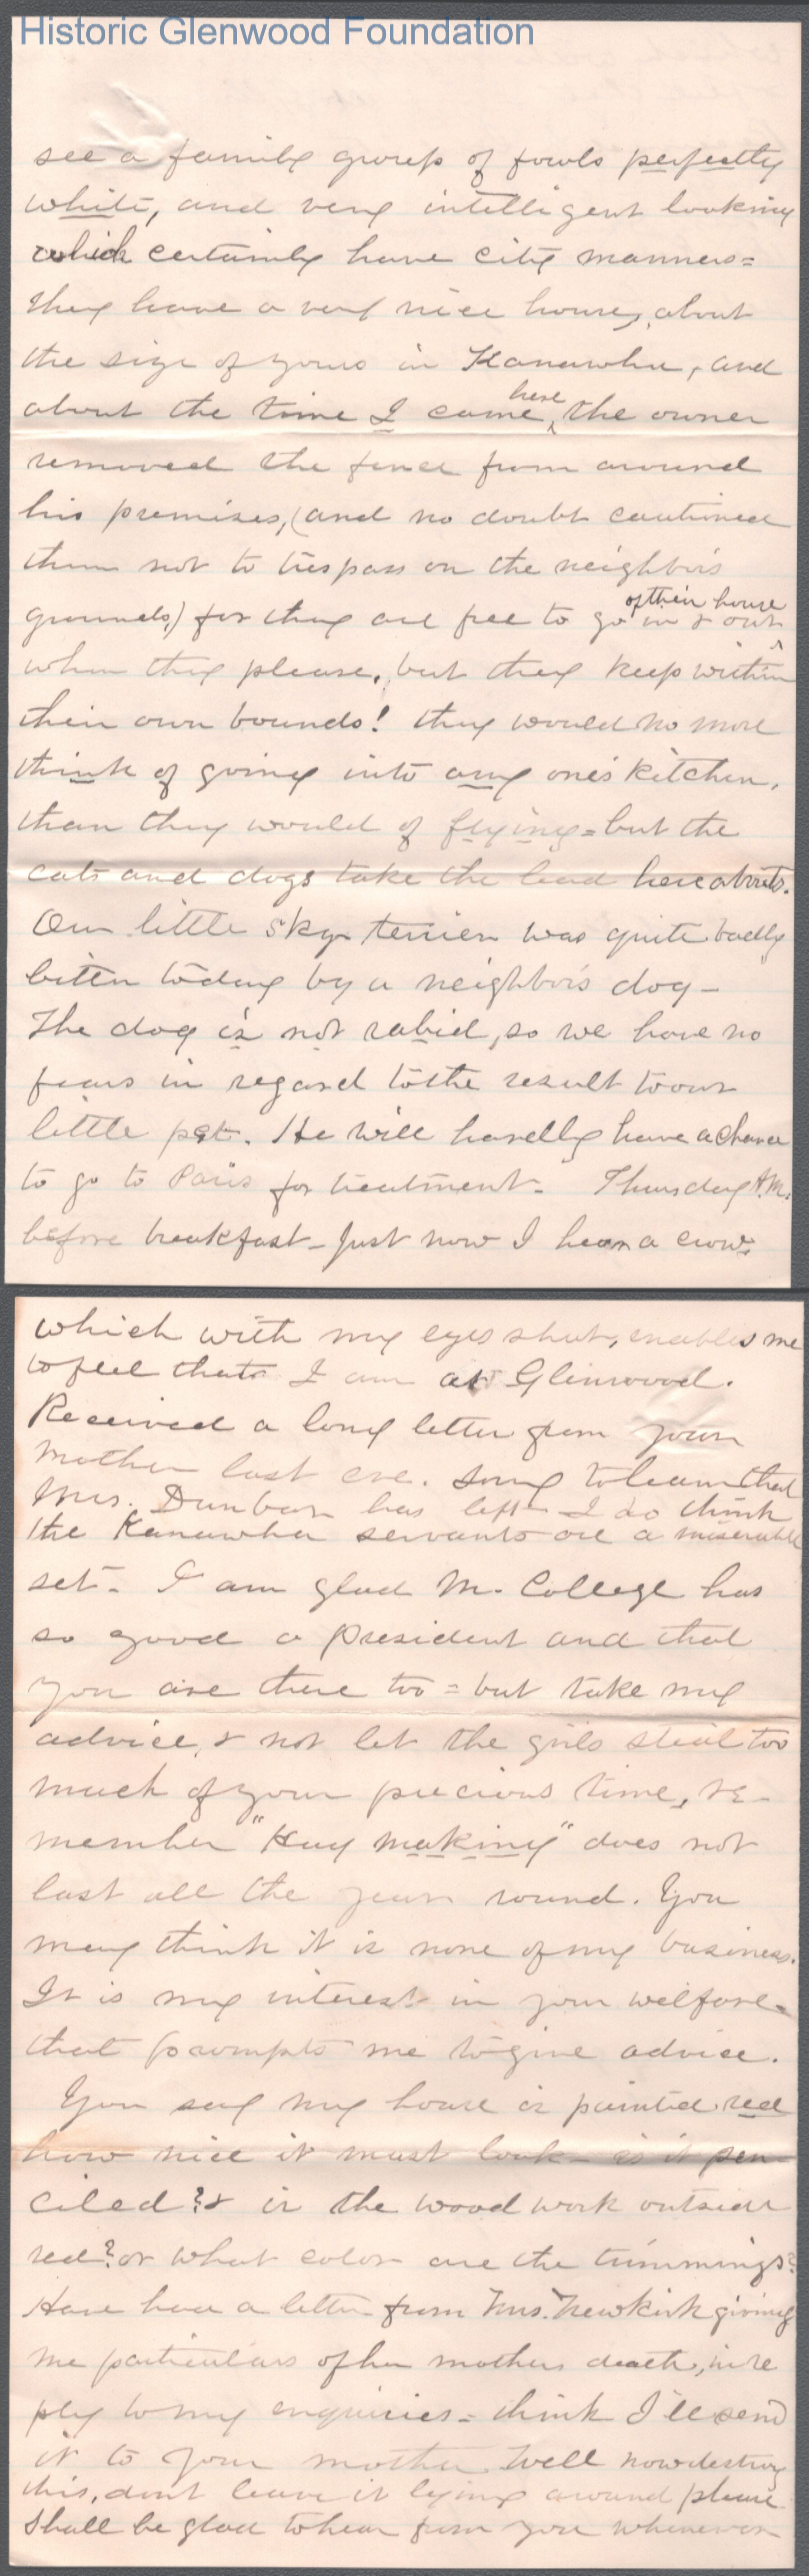 Historic Glenwood Foundation
see a family group of fowls perfectly
white, and very intelligent looking
which certainly have city manners=
they have a very nice house, about
the size of yours in Kanawha, and
about the time I came here, the owner
removed the fence from around
his premises, (and no doubt cautioned
them not to trespass on the neighbor's
grounds,) for they are free to go in & out of their house
when they please, but they keep within
their own bounds! they would no more
think of going into any one's kitchen,
than they would of flying = but the
cats and dogs take the lead hereabouts.
Our little skye terrier was quite badly
bitten today by a neighbor's dog -
The dog is not rabid, so we have no
fears in regard to the result to our
little pet. He will hardly have a chance
to go to Paris for treatment - Thursday A.M.
before breakfast - Just now I hear a crow,
which with my eyes shut, enables me
to feel that I am at Glenwood.
Received a long letter from your
mother last eve. Sorry to learn that
Mrs. Dunbar has left - I do think
the Kanawha servants are a miserable
set - I am glad M. College has
so good a President and that
you are there too = but take my
advice, & not let the girls steal too
much of your precious time, re-
member "Hay making" does not
last all the year round. You
may think it is none of my business.
It is my interest in your welfare
that prompts me to give advice.
You say my house is painted red
how nice it must look - is it pen-
ciled? & is the wood work outside
red? or what color are the trimmings?
Have had a letter from Mrs. Newkirk giving
me particulars of her mothers death, in re
ply to my enquiries = think I'll send
it to your mother. Well now destroy
this, dont leave it lying around please
Shall be glad to hear from you whenever